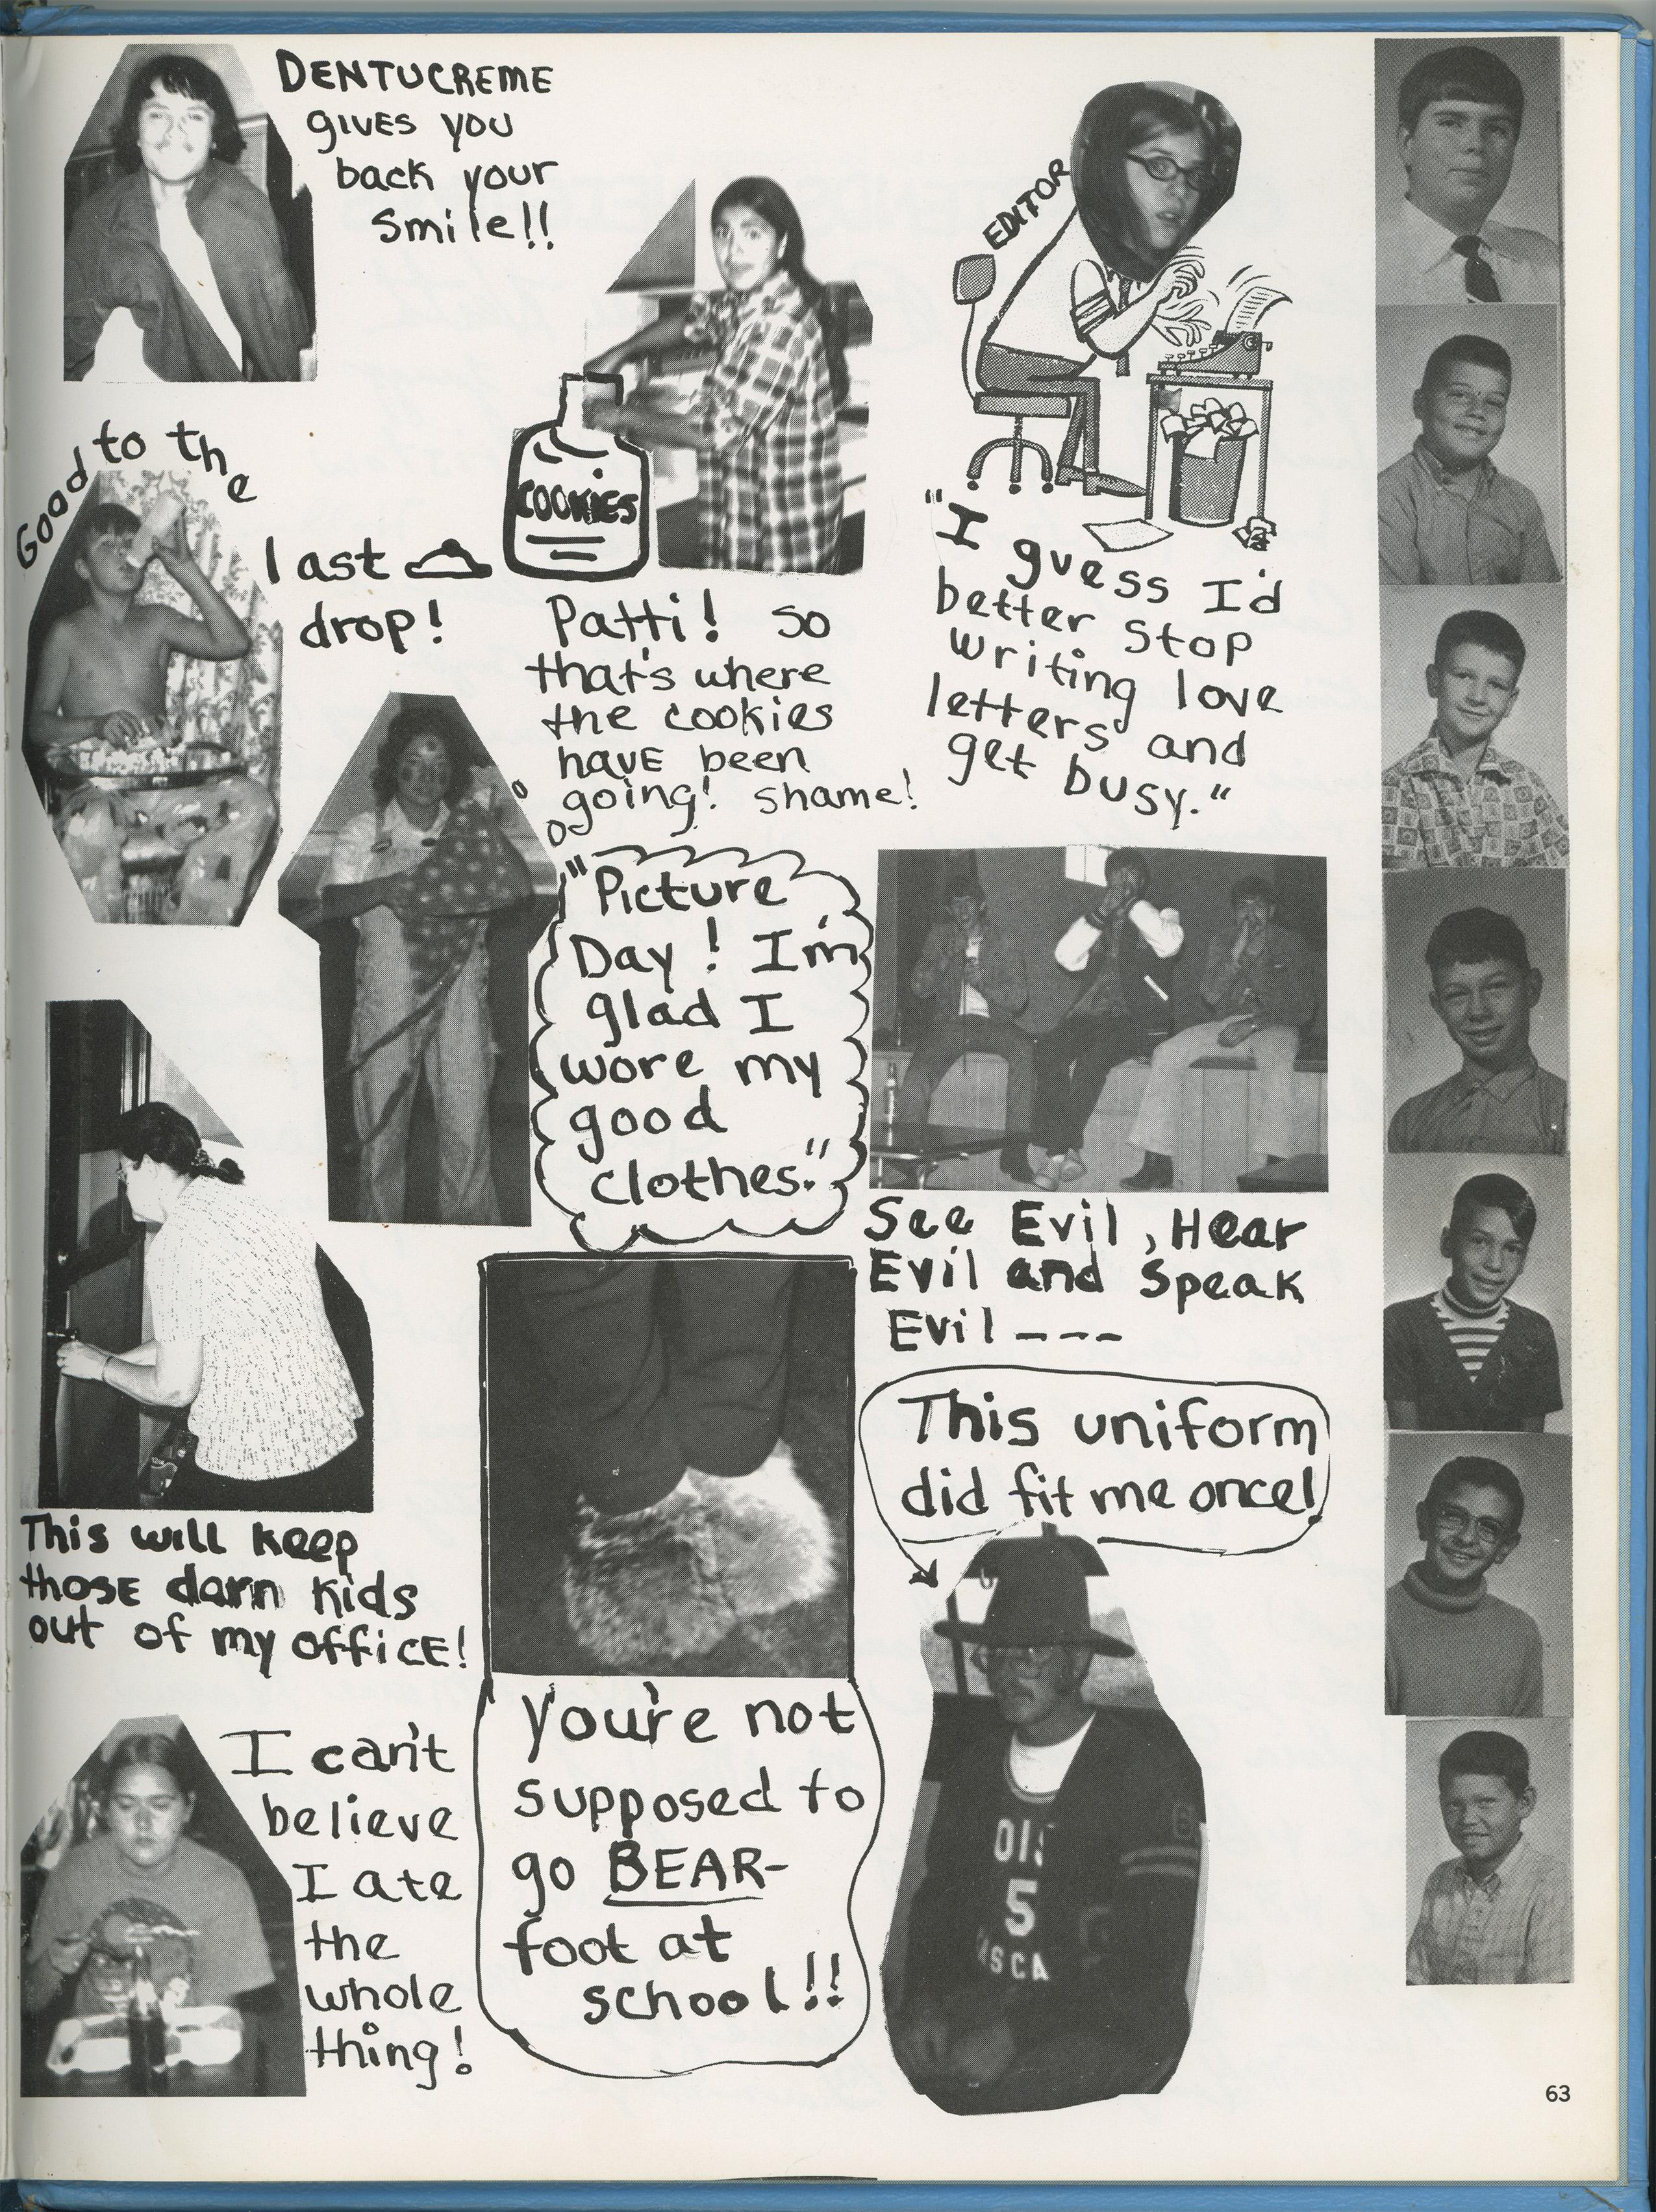 DENTUCREME
gives you
back your
smile!!
EDITOR
Good to the
last
drop!
COOKIES
Patti! so
that's where
the cookies
have been
going! shame!
"I guess I'd
better stop
writing love
letters and
get busy."
"Picture
Day! I'm
glad I
wore my
good
clothes."
See Evil, Hear
Evil and Speak
Evil ---
This uniform
did fit me once!
This will keep
those darn kids
out of my office!
You're not
supposed to
go BEAR-
foot at
school!!
I can't
believe
I ate
the
whole
thing!
OIS
5
ASCA
63